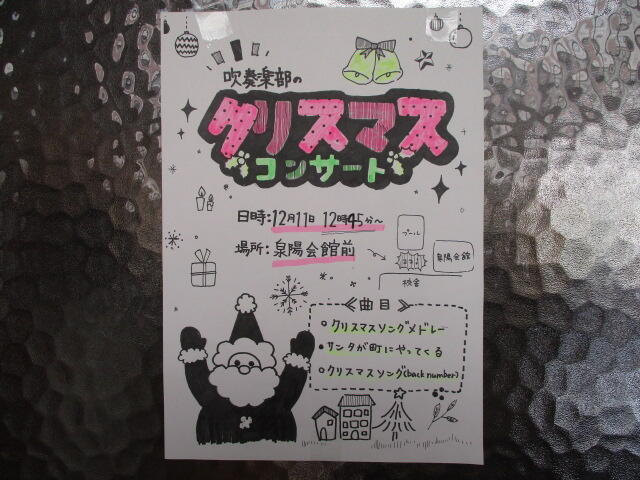 吹奏楽部の
クリスマス
コンサート
日時:12月11日 12時45分~
場所:泉陽会館前
プール
泉陽会館
校舎
≪曲目≫
○クリスマスソングメドレー
●サンタが町にやってくる
○クリスマスソング(back number)